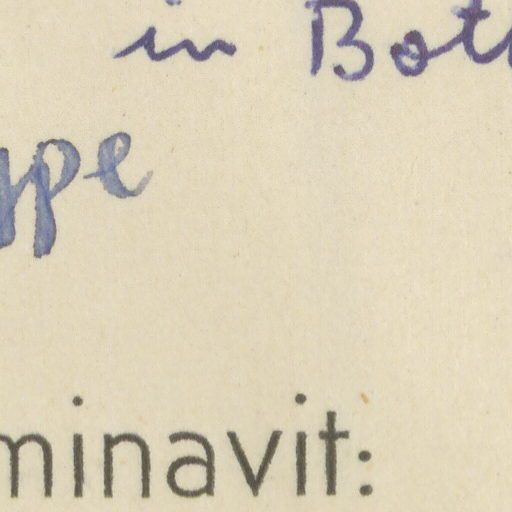 in Bott
ype
minavit: